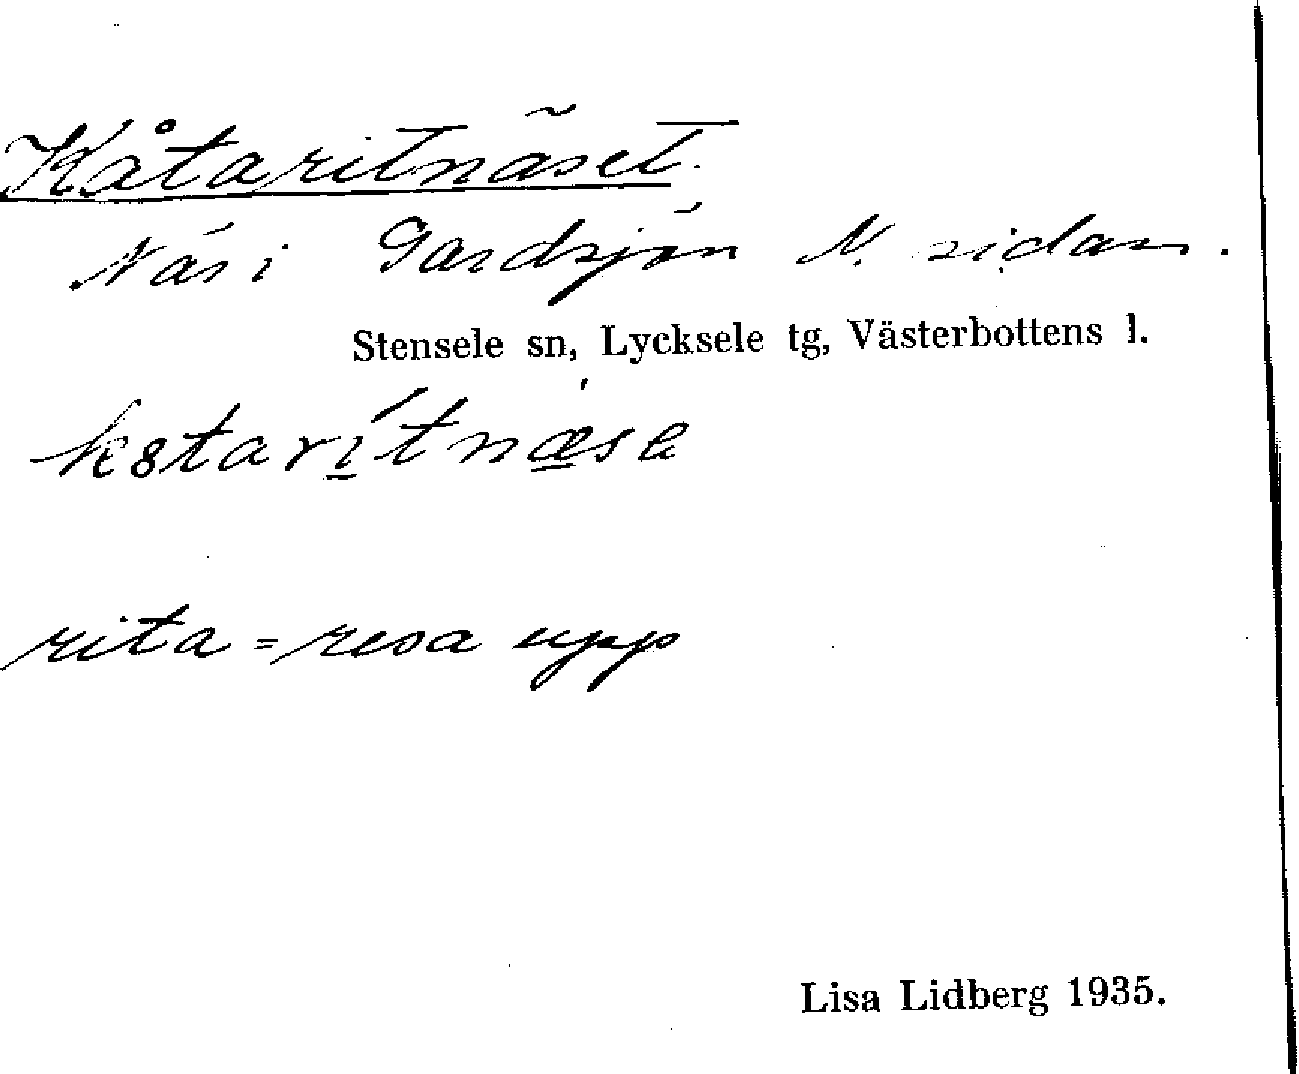 Kåtaritnäset.
Näs i Gardsjön N. sidan.
Stensele sn, Lycksele tg, Västerbottens l.
k8tarítnæse
rita = resa upp
Lisa Lidberg 1935.